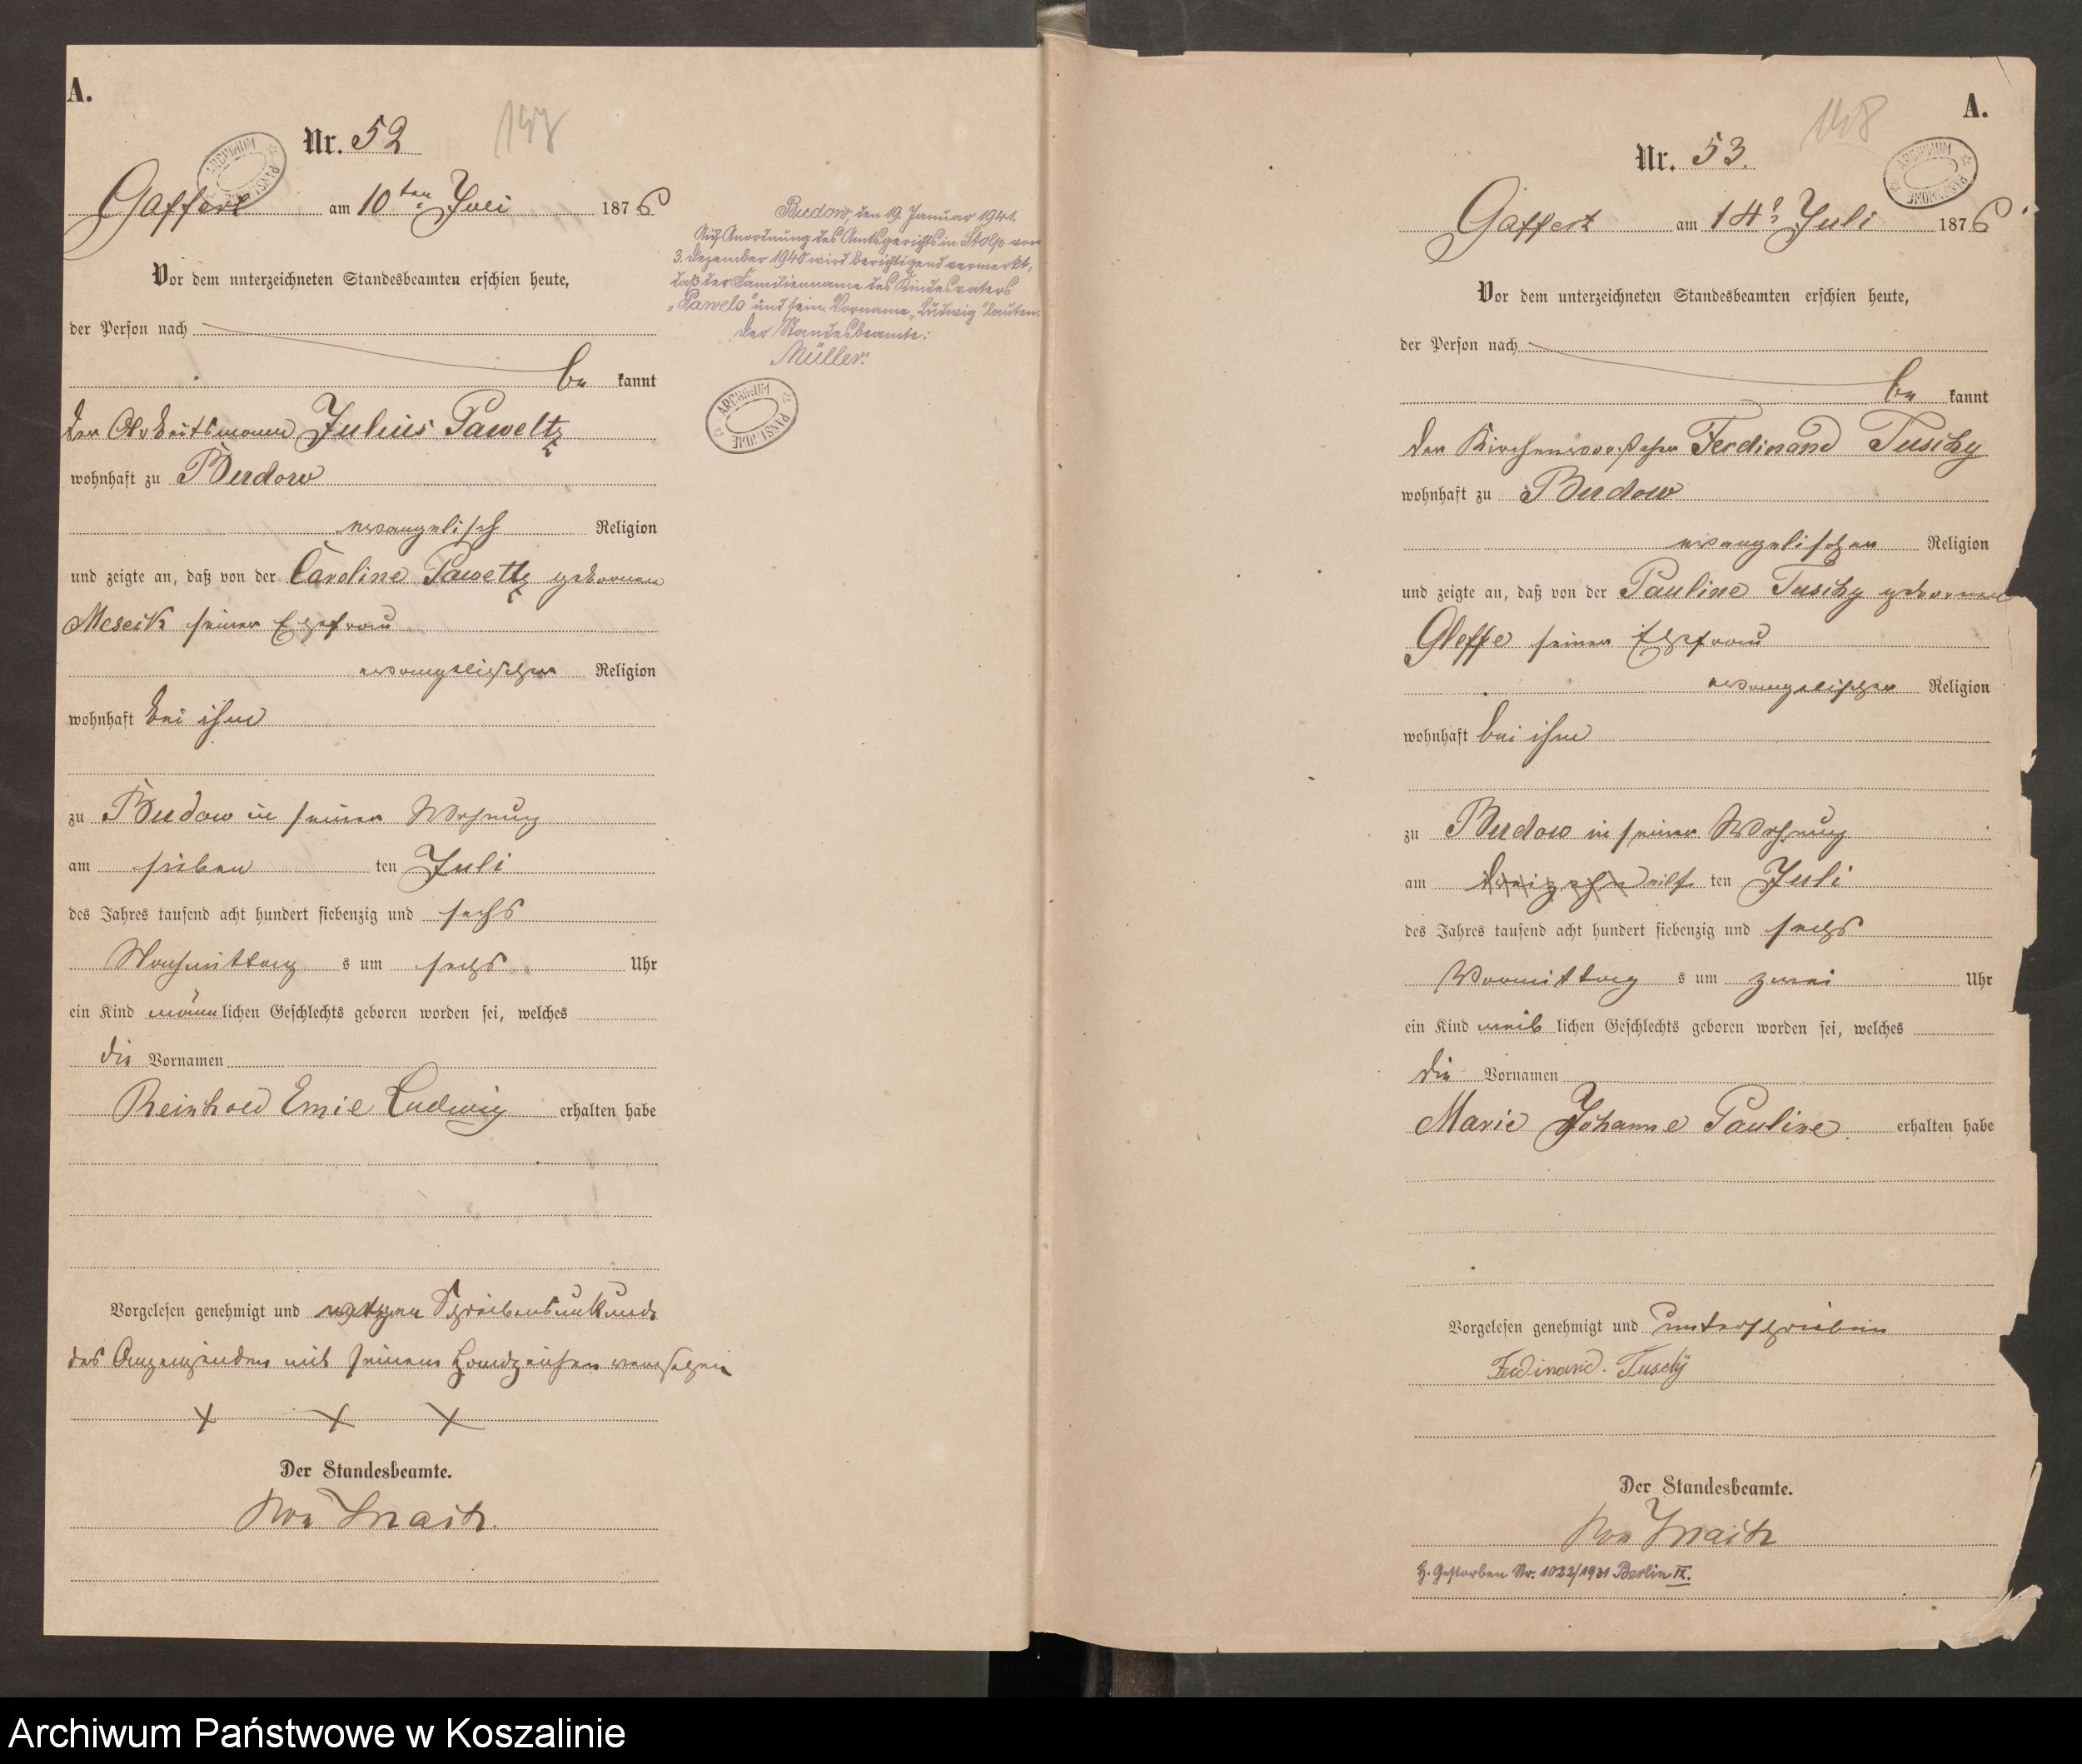 A.
Nr. 52
147
Gaffert am 10ten Juli 1876
Vor dem unterzeichneten Standesbeamten erschien heute,
der Person nach
be kannt
der Arbeitsmann Julius Paweltz
wohnhaft zu Budow
evangelisch Religion
und zeigte an, daß von der Caroline Paweltz geborenen
Meseik seiner Ehefrau
evangelischer Religion
wohnhaft bei ihm
zu Budow in seiner Wohnung
am sieben ten Juli
des Jahres tausend acht hundert siebenzig und sechs
Nachmittag s um sechs Uhr
ein Kind männ lichen Geschlechts geboren worden sei, welches
die Vornamen
Reinhold Emil Ludwig erhalten habe
Vorgelesen genehmigt und wegen Schreibensunkunde
des Anzeigenden mit seinem Handzeichen versehen
+ + +
Der Standesbeamte.
von
Budow, den 19. Januar 1941.
Auf Anordnung des Amtsgerichts in Stolp vom
3. Dezember 1940 wird berichtigend vermerkt,
daß der Familienname des Kindesvaters
„Pawels" und sein Vorname „Ludwig" lauten.
Der Standesbeamte:
Müller.
ARCHIWUM PAŃSTWOWE
A.
148
Nr. 53.
ARCHIWUM PAŃSTWOWE
Gaffert am 14t Juli 1876
Vor dem unterzeichneten Standesbeamten erschien heute,
der Person nach
be kannt
der Kirchenvorsteher Ferdinand Tuschy
wohnhaft zu Budow
evangelischen Religion
und zeigte an, daß von der Pauline Tuschy geborenen
Gleffe seiner Ehefrau
evangelischer Religion
wohnhaft bei ihm
zu Budow in seiner Wohnung
am dreizehn eilf ten Juli
des Jahres tausend acht hundert siebenzig und sechs
Vormittag s um zwei Uhr
ein Kind weib lichen Geschlechts geboren worden sei, welches
die Vornamen
Marie Johanne Pauline erhalten habe
Vorgelesen genehmigt und unterschrieben
Ferdinand. Tuschÿ
Der Standesbeamte.
von
H. Gestorben Nr. 1022/1931 Berlin IX.
Archiwum Państwowe w Koszalinie